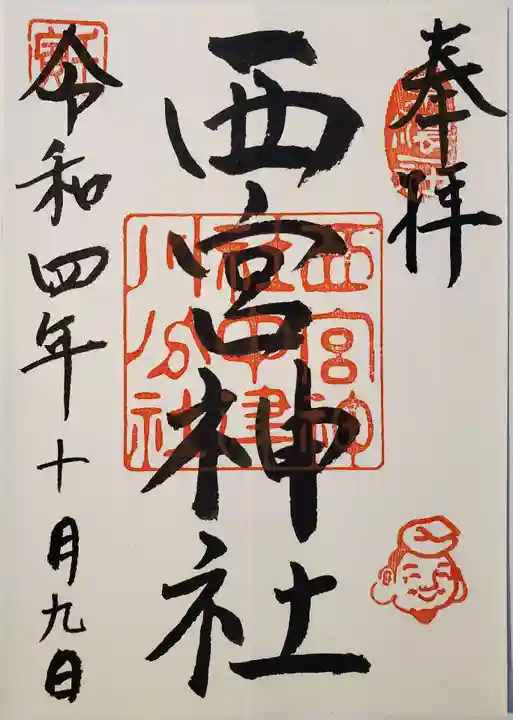 奉拝
西宮神社
西宮神
社中津
川分社
令和四年十月九日